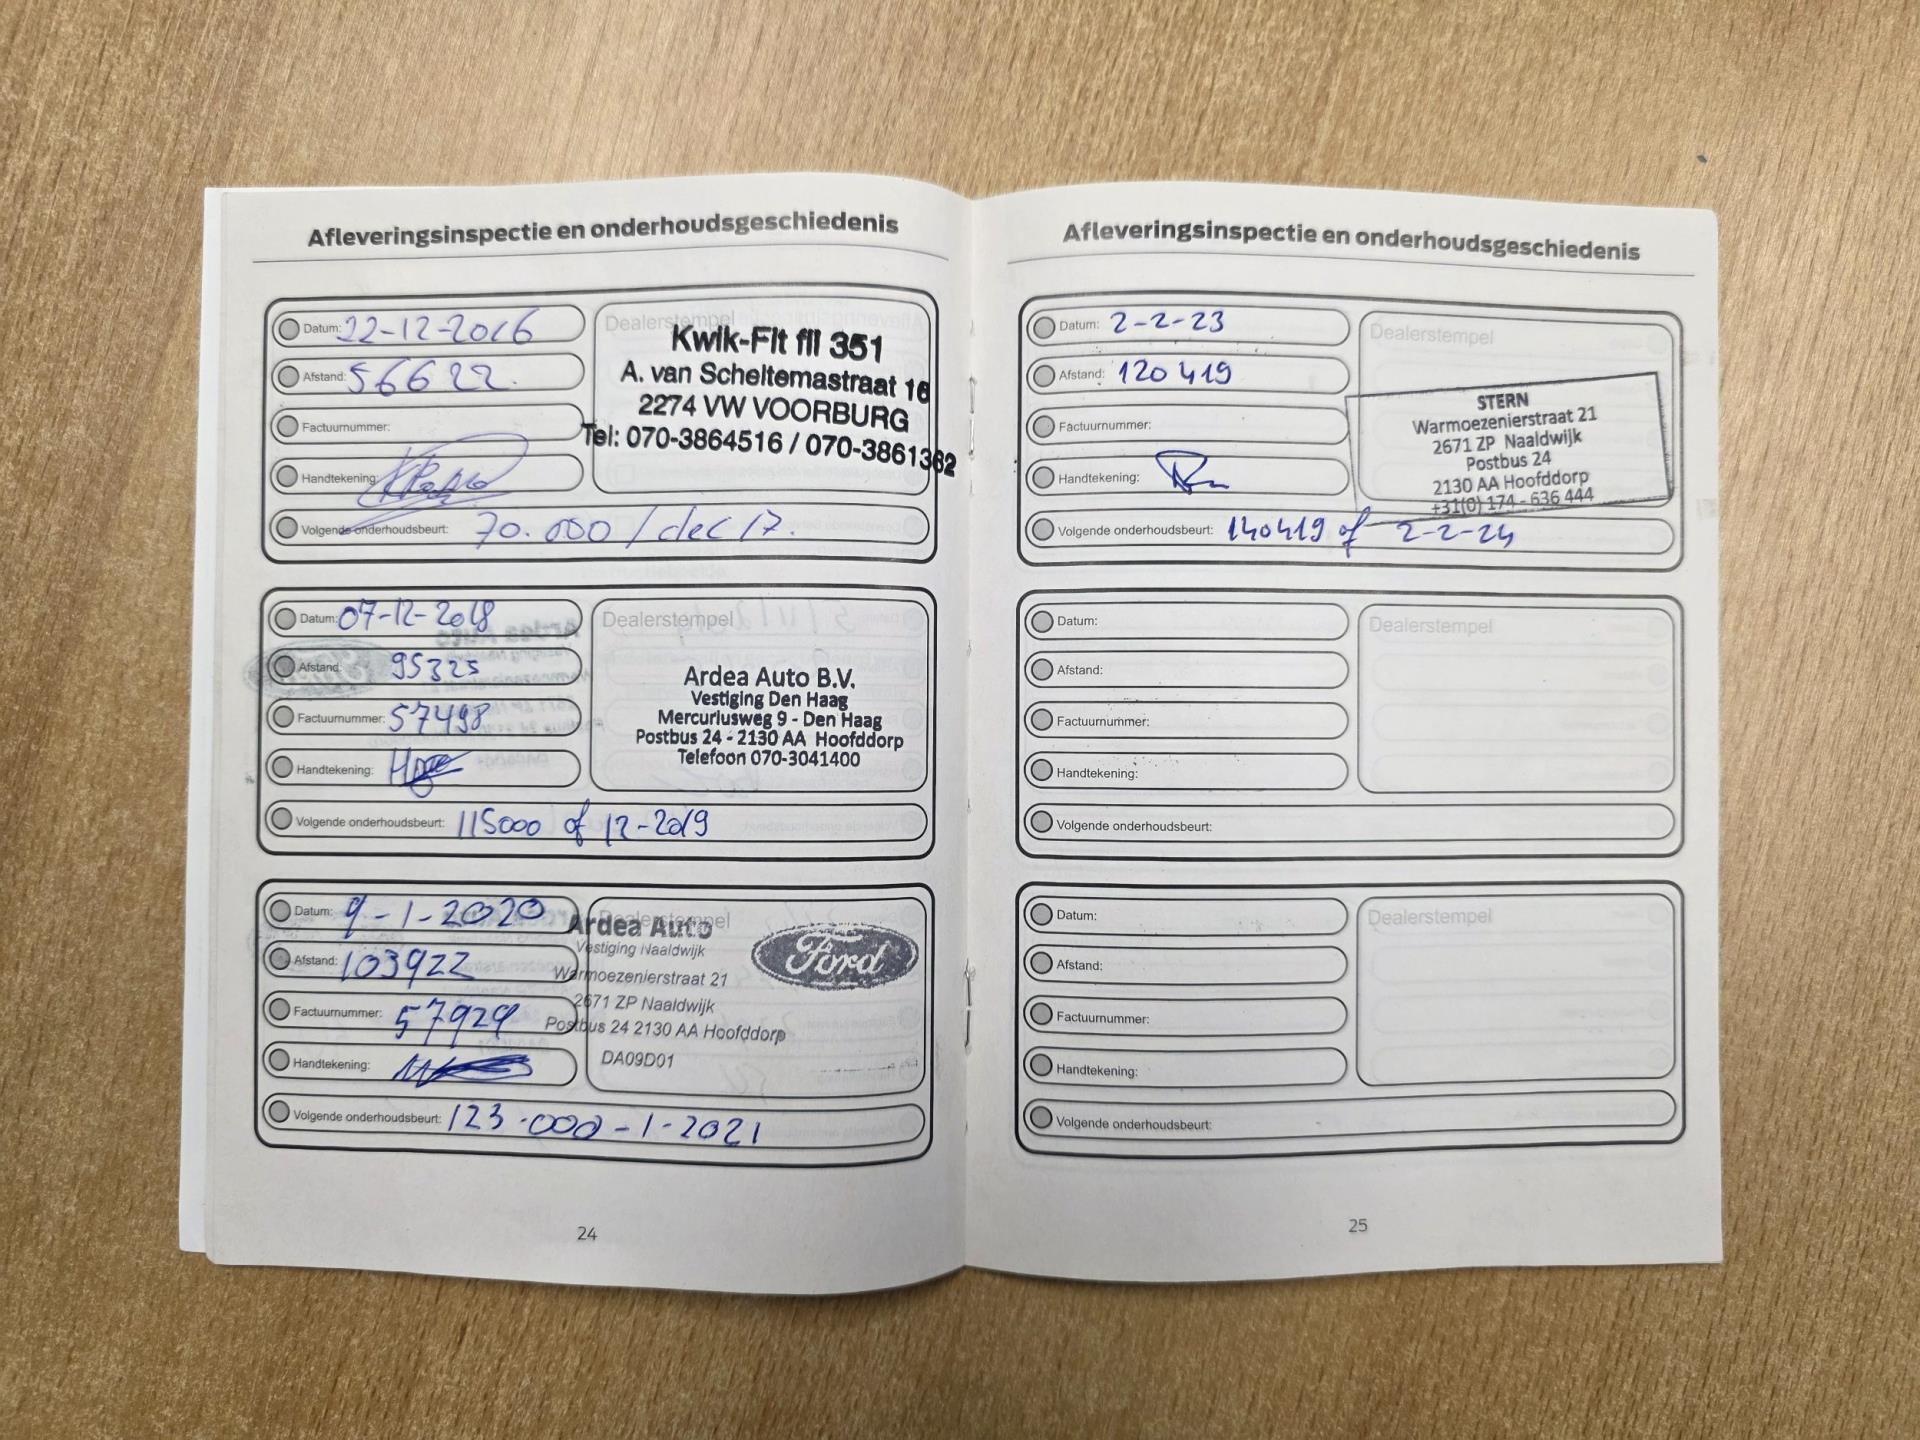 Afleveringsinspectie en onderhoudsgeschiedenis
Datum: 22-12-2016
Afstand: 56622.
Factuurnummer:
Handtekening:
Volgende onderhoudsbeurt: 70.000 / dec 17.
Dealerstempel
Kwik-Fit fil 351
A. van Scheltemastraat 16
2274 VW VOORBURG
Tel: 070-3864516 / 070-3861362
Datum: 07-12-2018
Afstand: 95325
Factuurnummer: 57498
Handtekening:
Volgende onderhoudsbeurt: 115000 of 12-2019
Dealerstempel
Ardea Auto B.V.
Vestiging Den Haag
Mercuriusweg 9 - Den Haag
Postbus 24 - 2130 AA Hoofddorp
Telefoon 070-3041400
Datum: 9-1-2020
Afstand: 103922
Factuurnummer: 57929
Handtekening:
Volgende onderhoudsbeurt: 123.000 - 1-2021
Dealerstempel
Ardea Auto
Vestiging Naaldwijk
Warmoezenierstraat 21
2671 ZP Naaldwijk
Postbus 24 2130 AA Hoofddorp
DA09D01
Ford
24
Afleveringsinspectie en onderhoudsgeschiedenis
Datum: 2-2-23
Afstand: 120419
Factuurnummer:
Handtekening:
Volgende onderhoudsbeurt: 140419 of 2-2-24
Dealerstempel
STERN
Warmoezenierstraat 21
2671 ZP Naaldwijk
Postbus 24
2130 AA Hoofddorp
+31(0) 174 - 636 444
Datum:
Afstand:
Factuurnummer:
Handtekening:
Volgende onderhoudsbeurt:
Dealerstempel
Datum:
Afstand:
Factuurnummer:
Handtekening:
Volgende onderhoudsbeurt:
Dealerstempel
25